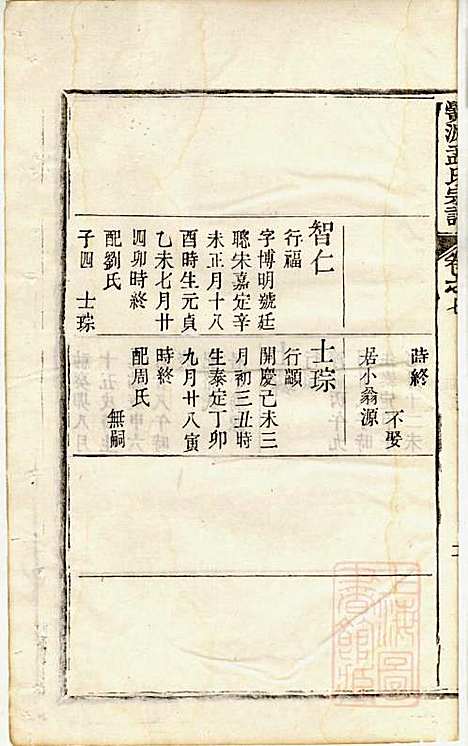 源孟氏宗譜
卷之七
智仁
行福
字博明號廷
聰宋嘉定辛
未正月十八
酉時生元貞
乙未七月廿
四卯時終
配劉氏
子四 士琮
時終
不娶
居小翁源
士琮
行顓
開慶己未三
月初三丑時
生泰定丁卯
九月廿八寅
時終
配周氏
無嗣
上海圖
書館